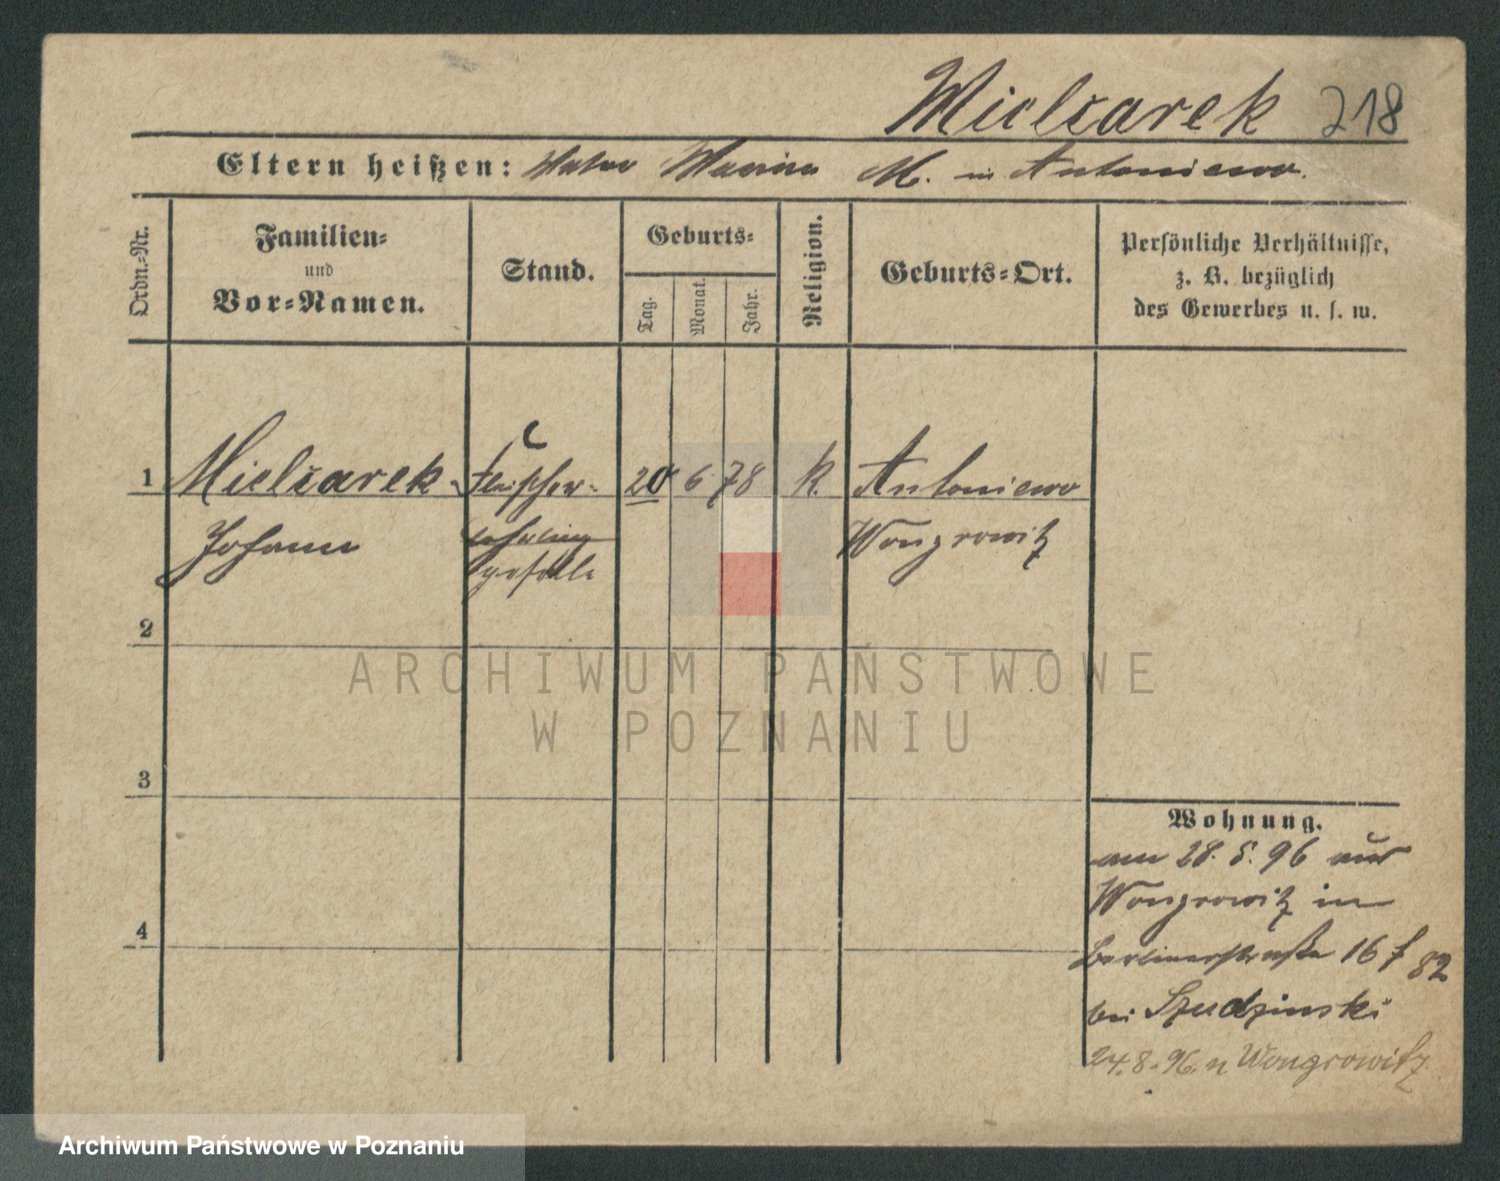 Mielcarek 218
Eltern heißen: Vater M. in Antoniewo.
Ordn.-Nr.
Familien-
und
Vor-Namen.
Stand.
Geburts-
Tag.
Monat.
Jahr.
Religion.
Geburts-Ort.
Persönliche Verhältnisse,
z. B. bezüglich
des Gewerbes u. s. w.
1 Mielcarek Fleischer- 20 6 78 K. Antoniewo
Johann lehrling Wongrowitz
geselle
2
ARCHIWUM PAŃSTWOWE
W POZNANIU
3
Wohnung.
am 28. 5. 96 aus
Wongrowitz in
4
Berlinerstraße 16 f 82
bei Szudzinski
24.8.96. n Wongrowitz
Archiwum Państwowe w Poznaniu